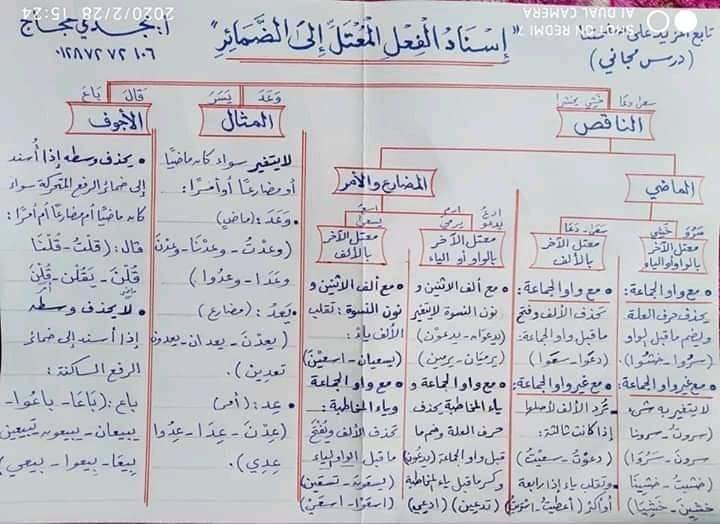 2020/2/28 15:24
SHOT ON REDMI 7
AI DUAL CAMERA
(درس مجاني)
"إسناد الفعل المعتل إلى الضمائر"
أ. مجدي حجاج
٠١٢٨٧٢٧٢١٠٦
سعى، دعا خشي
الناقص
الماضي
سَرُوَ - خَشِيَ
معتل الآخر
بالواو أو الياء
• مع واو الجماعة:
يحذف حرف العلة
ويضم ما قبل الواو
(سَرُوا - خشُوا)
• مع غير واو الجماعة:
لا يتغير به شيء
سروتُ - سرونا
سرونَ - سَرُوَا
خشيتُ - خشينَا
خشينَ - خَشِيَا
سعى - دعا
معتل الآخر
بالألف
• مع واو الجماعة:
تحذف الألف وفتح
ما قبل واو الجماعة:
(دعَوا - سعَوا)
• مع غير واو الجماعة:
- تُرد الألف لأصلها
إذا كانت ثالثة:
(دعوْتُ - سعيْتُ)
• وتقلب ياء إذا رابعة
أو أكثر
المضارع والأمر
ادعُ يدعو
ارمِ يرمي
معتل الآخر
بالواو أو الياء
• مع ألف الاثنين و
نون النسوة لا يتغير
(يدعوَان - يدعوْن)
(يرميَان - يرمين)
• مع واو الجماعة و
ياء المخاطبة يحذف
حرف العلة وضم ما
قبل واو الجماعة (يدعُون)
وكسر ما قبل ياء المخاطبة
(تدعين) (ادعي)
اسعَ
يسعى
معتل الآخر
بالألف
• مع ألف الاثنين و
نون النسوة: تقلب
الألف ياءً:
(يسعيان - اسعيْنَ)
• مع واو الجماعة
وياء المخاطبة:
تحذف الألف ويُفتح
ما قبل الواو والياء
(يسعَوْن - تسعَيْن)
(اسعَوْا - اسعَيْ)
وَعَدَ يَسَرَ
المثال
لا يتغير سواء كان ماضيًا
أو مضارعًا أو أمرًا:
• وَعَدَ: (ماضٍ)
(وعدْتُ - وعدْنَا - وعدْنَ
وعَدَا - وعدُوا)
• يَعِدُ: (مضارع)
(يعدْنَ - يعدان - يعدون
تعدين).
• عِد: (أمر)
(عِدْنَ - عِدَا - عِدُوا
عِدِي).
قَالَ بَاعَ
الأجوف
• يحذف وسطه إذا أُسند
إلى ضمائر الرفع المتحركة سواء
كان ماضيًا أم مضارعًا أم أمرًا:
قال: (قلْتُ - قُلْنَا
قُلْنَ - يَقُلْنَ - قُلْنَ
• لا يحذف وسطه
إذا أسند إلى ضمائر
الرفع الساكنة:
باع: (بَاعَا - باعُوا -
يبيعان - يبيعون - تبيعين
بِيعَا - بيعوا - بيعي)